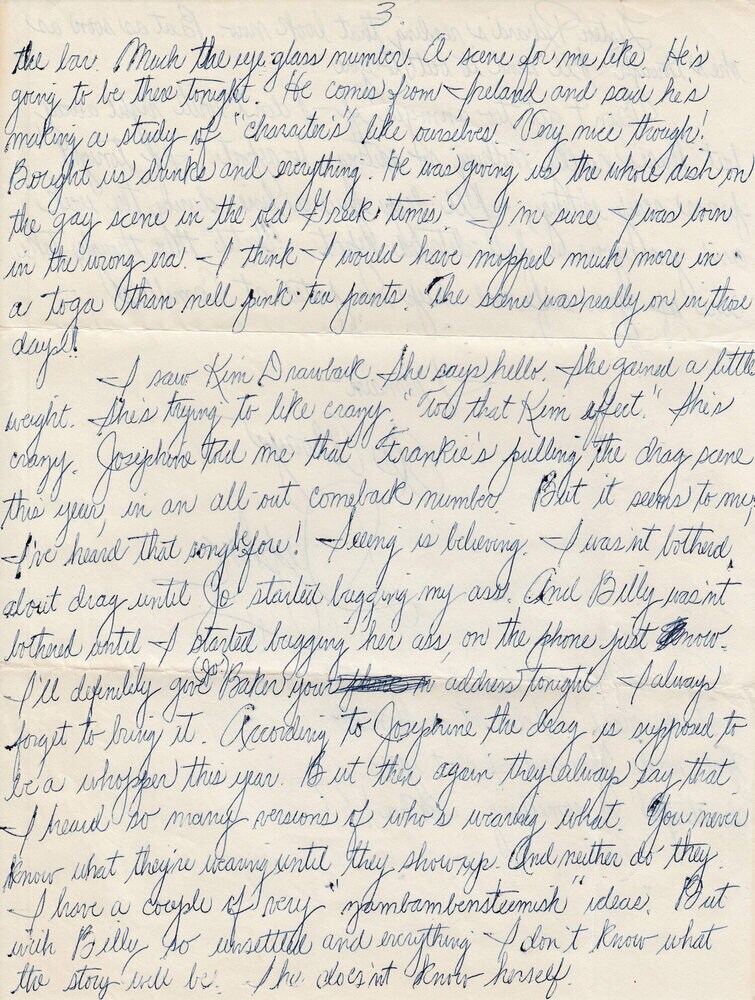 3
the bar. Much the eye glass number. A scene for me like. He's
going to be there tonight. He comes from Ireland and said he's
making a study of "character's" like ourselves. Very nice though!
Bought us drinks and everything. He was giving us the whole dish on
the gay scene in the old Greek times. I'm sure I was born
in the wrong era. I think I would have mopped much more in
a toga than nell pink tea pants. The scene was really on in those
days!!
I saw Kim Drawback. She says hello. She gained a little
weight. She's trying to like crazy, "Too that Kim effect." She's
crazy. Josephine told me that Frankie's pulling the drag scene
this year, in an all out comeback number. But it seems to me,
I've heard that song before! Seeing is believing. I was'nt botherd
about drag until Jo started bugging my ass. And Billy was'nt
bothered until I started bugging her ass, on the phone just now.
I'll definitly give Jo Baker your address tonight. I always
forget to bring it. According to Josephine the drag is supposed to
be a whopper this year. But then again they always say that.
I heard so many versions of who's wearing what. You never
know what they're wearing until they show up. And neither do they.
I have a couple of very " " ideas. But
with Billy so unsettled and everything I don't know what
the story will be. She does'nt know herself.